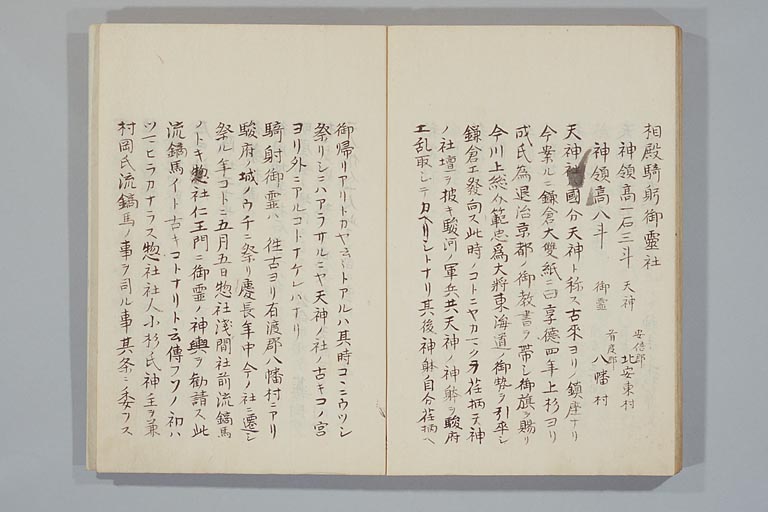 相殿騎射御霊社
神領高一石三斗 天神 安倍郡 北安東村
神領高八斗 御霊 有度郡 八幡村
天神社國分天神ト称ス古来ヨリノ鎮座ナリ
今案ルニ鎌倉大双紙ニ曰享徳四年上杉ヨリ
成氏為退治京都ノ御教書ヲ帯シ御旗ヲ賜リ
今川上総介範忠為大将東海道ノ御勢ヲ引率シ
鎌倉エ發向ス此時ノコトニヤカマクラ荏柄天神
ノ社壇ヲ披キ駿河ノ軍兵共天神ノ神躰ヲ駿府
エ乱取シテカヘリシトナリ其後神躰ノ自分荏柄ヘ
御帰リアリトカヤ云トアルハ其時コヽニウツシ
祭リシニハアラサルニヤ天神ノ社ノ古キコノ宮
ヨリ外ニアルコトナケレハナリ
騎射御霊ハ 往古ヨリ有渡郡八幡村ニアリ
駿府ノ城ノウチニ祭リ慶長年中今ノ社ニ遷シ
祭ル年コトニ五月五日惣社浅間社前流鏑馬
ノトキ惣社仁王門ニ御霊ノ神輿ヲ勧請ス此
流鏑馬イト古キコトナリト云傳フソノ初ハ
ツマヒラカナラス惣社社人小杉氏神主ヲ兼
村岡氏流鏑馬ノ事ヲ司ル事其条ニ委フス